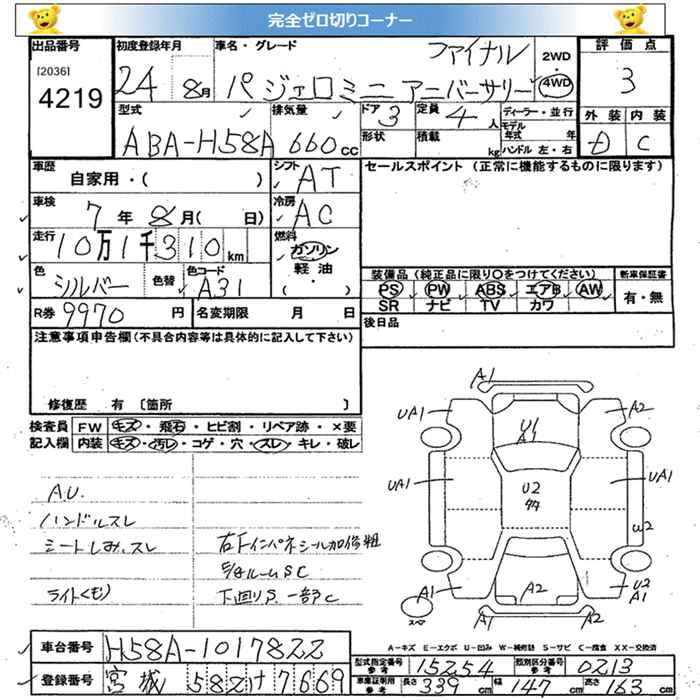 完全ゼロ切りコーナー
出品番号 初度登録年月 車名・グレード ファイナル 2WD 評価点
[2036] 4219 24 8月 パジェロミニ アニバーサリー 4WD 3
型式 排気量 ドア 3 定員 4人 ディーラー・並行 外装 内装
ABA-H58A 660cc 形状 積載 kg モデル年式 年 ハンドル 左・右 D C
車歴 シフト AT セールスポイント (正常に機能するものに限ります)
自家用・( )
車検 7年8月( 日) 冷房 AC
走行 10万1千310km 燃料 ガソリン 軽油 ( ・ )
色 シルバー 色替 色コード A31 装備品 (純正品に限り○をつけてください) 新車保証書
PS PW ABS エアB AW 有・無
SR ナビ TV カワ
R券 9970円 名変期限 月 日 後日品
注意事項申告欄(不具合内容等は具体的に記入して下さい)
修復歴 有 [箇所 ]
検査員 FW キズ・飛石・ヒビ割・リペア跡・×要
記入欄 内装 キズ・汚レ・コゲ・穴・スレ・キレ・破レ
A.U.
ハンドルスレ
シートしみ、スレ 右下インパネシール加修粗
S/タルームSC
ライトくもり 下回りS、一部C
A1
UA1 A2
U1
A1
UA1 U2 UA1
タタ
U2
A1 A2 U2
A1
スペア A1
A-キズ E-エクボ U-凹み W-補修跡 S-サビ C-腐食 XX-交換済
車台番号 H58A-1017822
型式指定番号 参考 15254 類別区分番号 参考 0213
登録番号 宮城 582 け 7669
車庫証明用 参考 長さ 339cm 幅 147cm 高さ 163cm